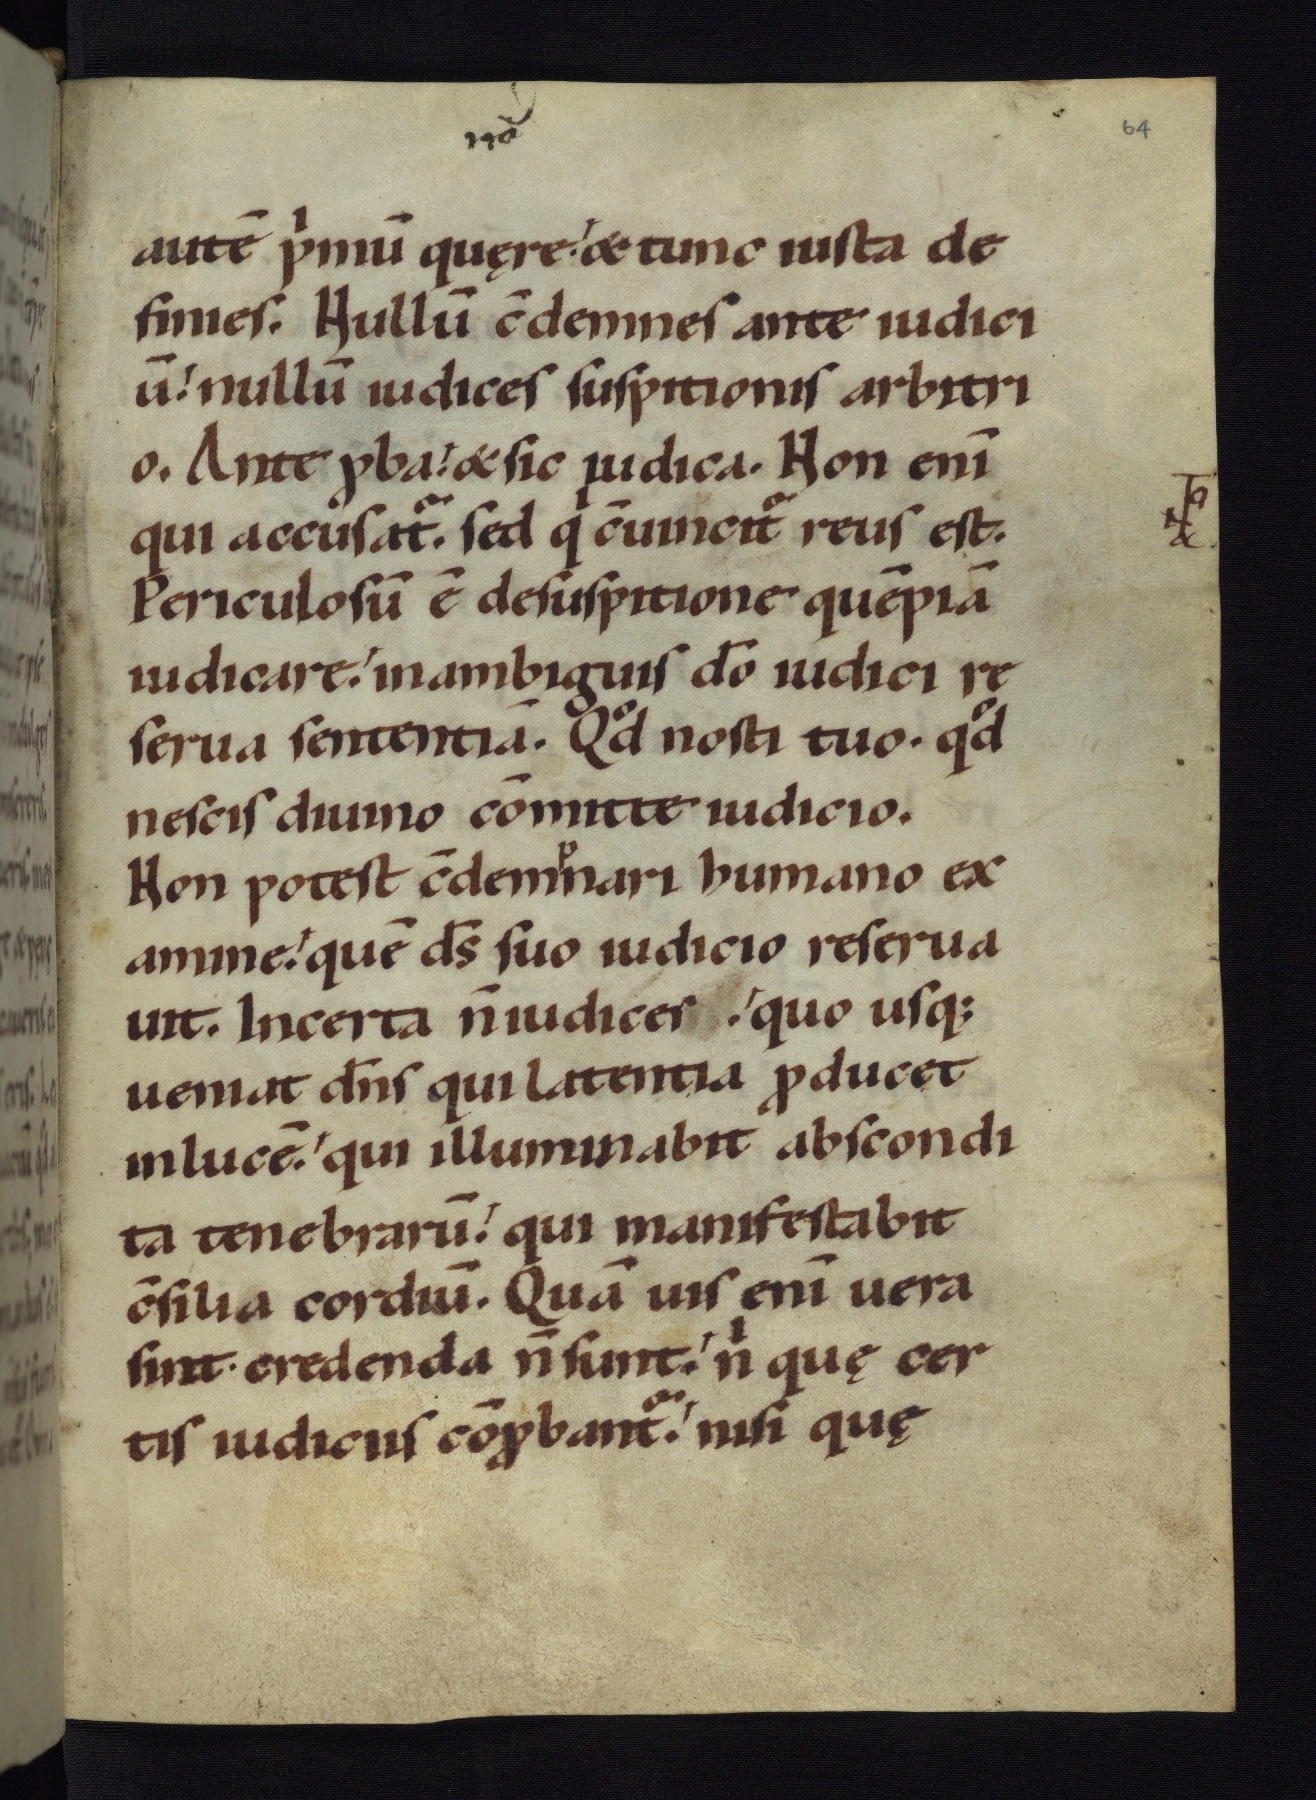 64
autē pͥmū quęre· & tunc iusta de
finies. Nullū c̄demnes ante iudici
ū· nullū iudices suspitionis arbitri
o. Ante ꝓba· & sic iudica. Non enī
qui accusat᷑. sed qͥ c̄uincit᷑ reus est.
Periculosū ē desuspitione quēpiā
iudicare· inambiguis dō iudici re
serua sententiā. Qͦd nosti tuo. qͦd
nescis diuino cōmitte iudicio.
Non potest c̄demᵖnari humano ex
amine· quē ds̄ suo iudicio reserua
uit. Incerta n̄ iudices · quo usq;
ueniat dn̄s qui latentia ꝓducet
inlucē· qui illuminabit abscondi
ta tenebrarū· qui manifestabit
c̄silia cordiū. Quā uis enī uera
sint· credenda n̄ sunt· nͥ quę cer
tis iudiciis cōꝓbant᷑· nisi quę